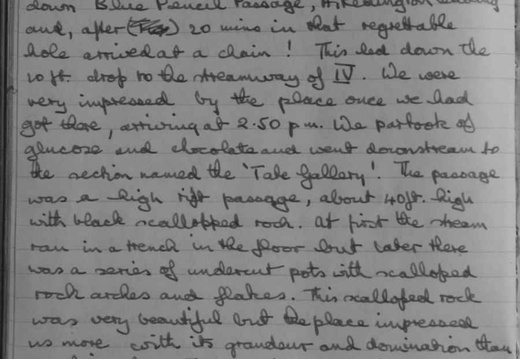 down Blue Pencil Passage,
and, after 20 mins in that regrettable
hole arrived at a chain! This led down the
10 ft. drop to the streamway of IV. We were
very impressed by the place once we had
got there, arriving at 2.50 p.m. We partook of
glucose and chocolate and went downstream to
the section named the 'Tate Gallery'. The passage
was a high rift passage, about 40ft. high
with black scallopped rock. At first the stream
ran in a trench in the floor but later there
was a series of undercut pots with scalloped
rock arches and flakes. This scalloped rock
was very beautiful but the place impressed
us more with its grandeur and domination than